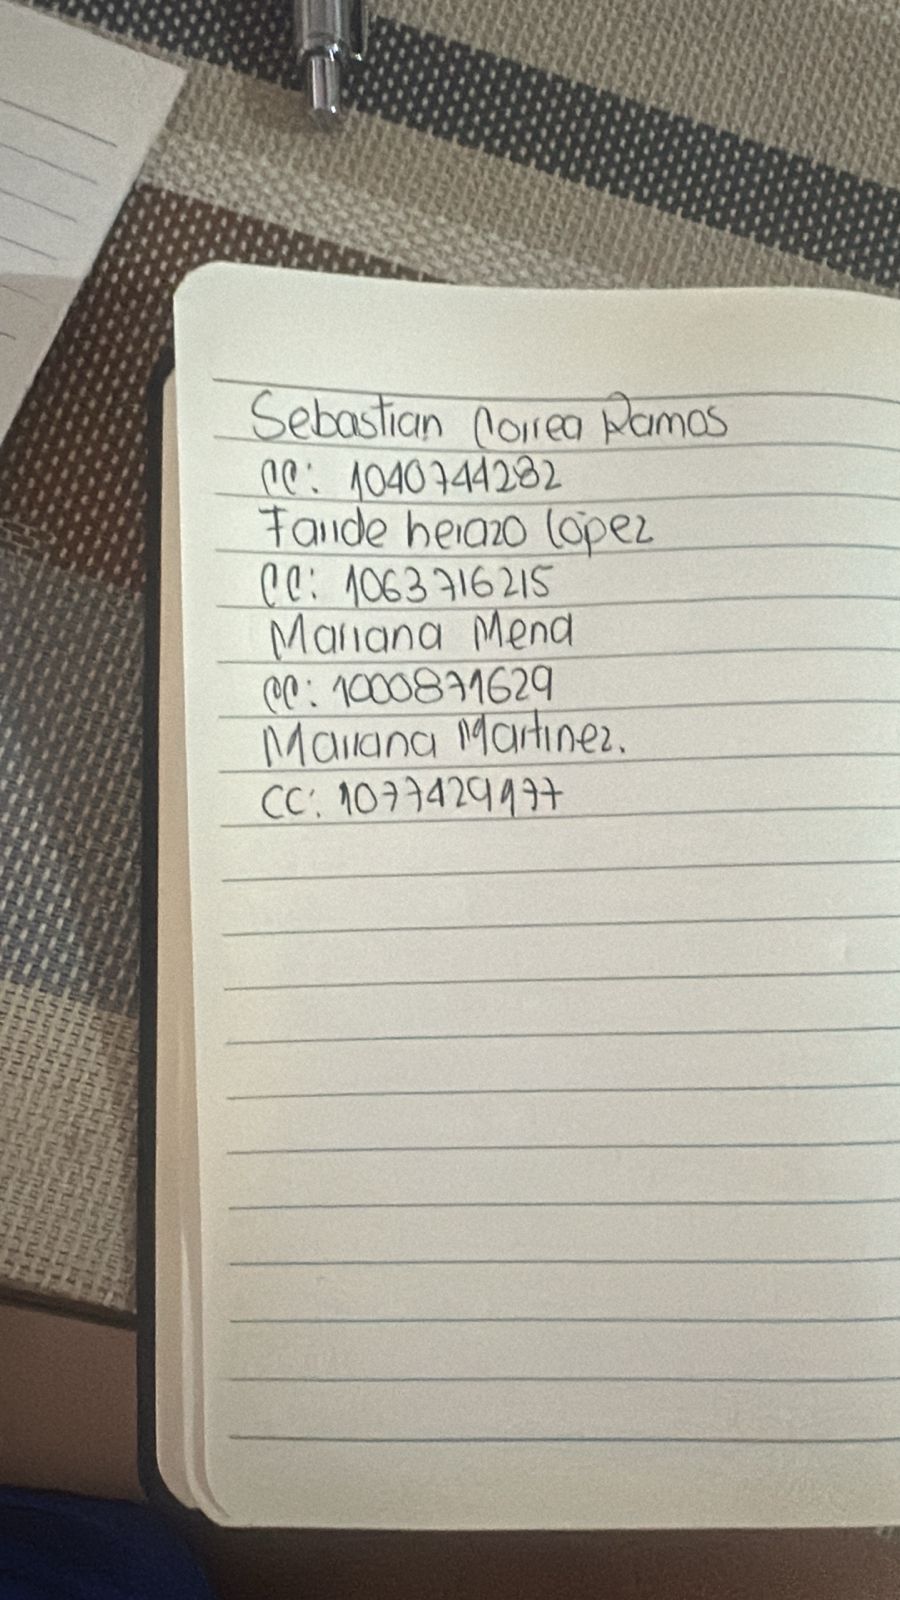 Sebastian Correa Ramos
CC: 1040744282
Faride herazo lópez
CC: 1063716215
Mariana Mena
CC: 1000871629
Mariana Martinez.
CC: 1077429977